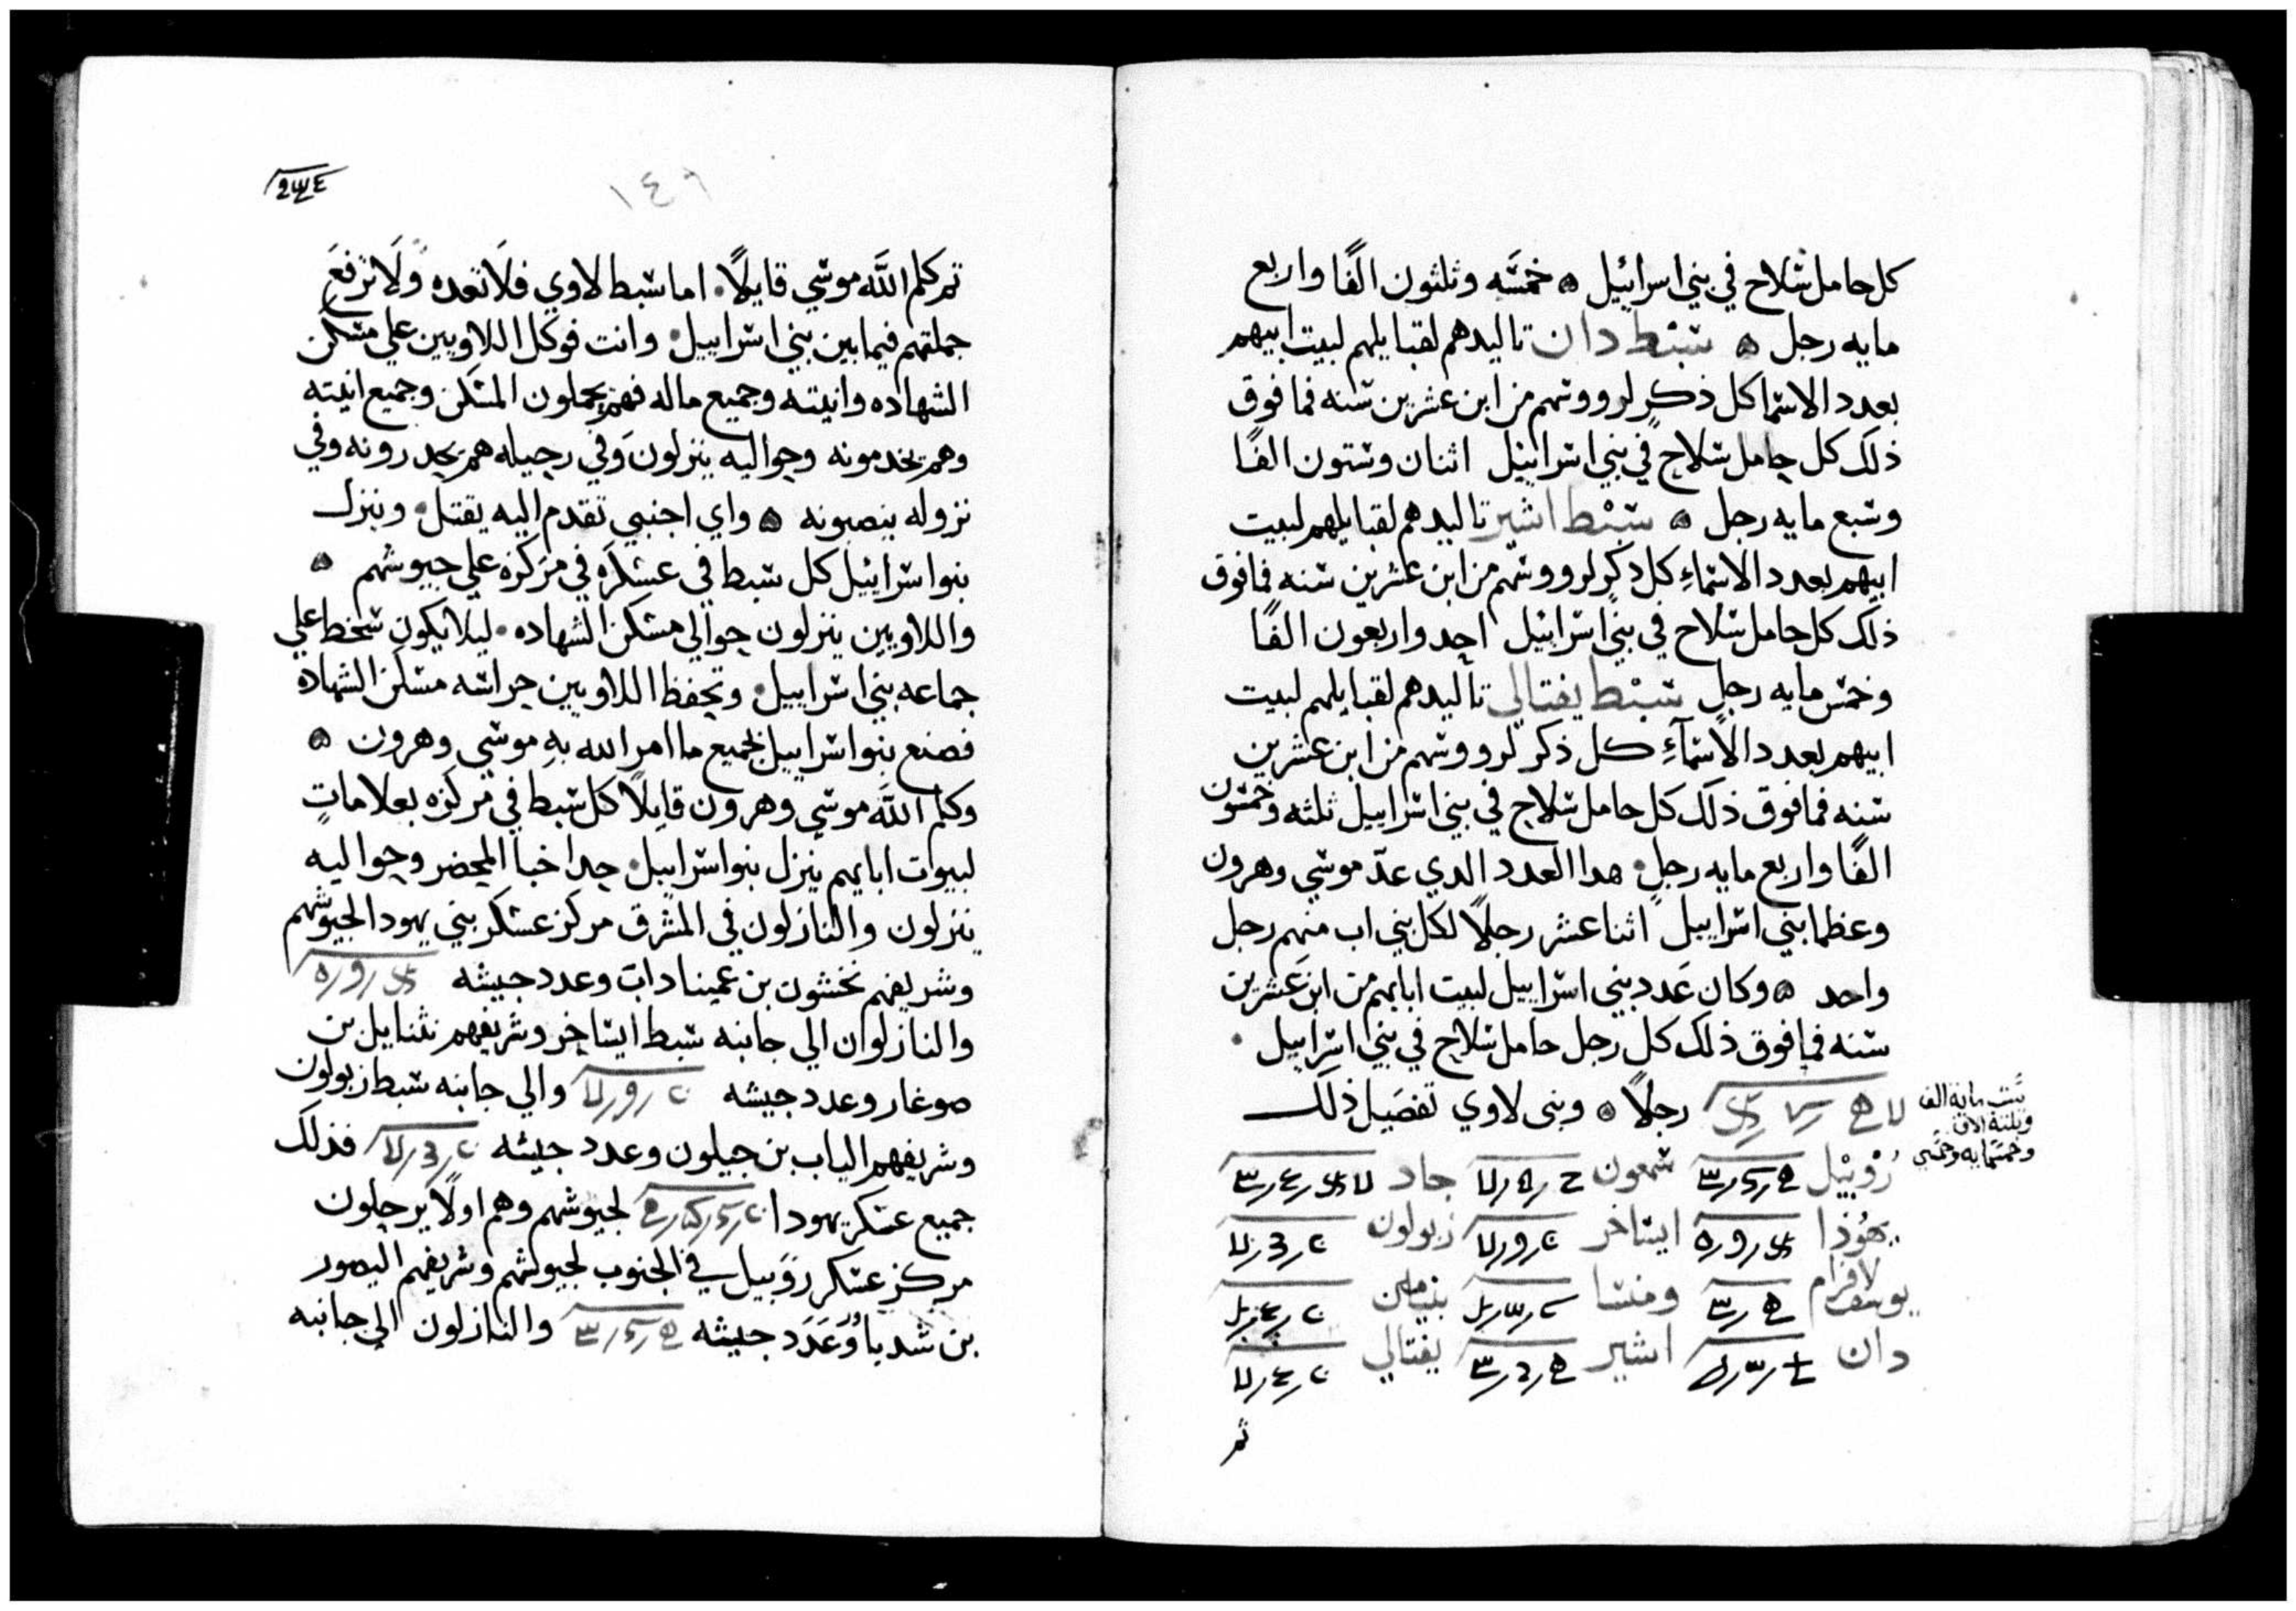 كل حامل سلاح في بني اسرائيل ۞ خمسه وثلثون الفًا واربع
مايه رجل ۞ سبط دان تاليدهم لقبايلهم لبيت ابيهم
بعدد الاسما كل ذكر لرووسهم من ابن عشرين سنه فما فوق
ذلك كل حامل سلاح في بني اسراييل اثنان وستون الفًا
وسبع مايه رجل ۞ سبط اشير تاليدهم لقبايلهم لبيت
ابيهم بعدد الاسماءِ كل ذكر لرووسهم من ابن عشرين سنه فما فوق
ذلك كل حامل سلاح في بني اسراييل احد واربعون الفًا
وخمس مايه رجل سبط يفتالي تاليدهم لقبايلهم لبيت
ابيهم بعدد الاسمآءِ كل ذكر لرووسهم من ابن عشرين
سنه فما فوق ذلك كل حامل سلاح في بني اسراييل ثلثه وخمسون
الفًا واربع مايه رجل هدا العدد الدي عدّ موسي وهرون
وعظما بني اسراييل اثنا عشر رجلاً لكل بني اب منهم رجل
واحد ۞ وكان عدد بني اسراييل لبيت ابايهم من ابن عشرين
سنه فما فوق ذلك كل رجل حامل سلاح في بني اسراييل
رجلاً ۞ وبنى لاوي تفصيل ذلك
ستت مايه الف
وثلثة الاف
وخمسمايه وخمسي
رُوْبيْل شمعون جاد
يهُوْذا ايساخر زبولون
يوسف لافرام ومنسا بنيامين
دان اشير يفتالي
ثم
١٤٩
ثم كلم اللَّه موسي قايلاً اما سبط لاوي فلا تعده ولا ترفع
جملتهم فيما بين بني اسراييل وانت فوكل اللاويين علي مسكن
الشهاده وانيته وجميع ماله فهم يحملون المسكن وجميع انيته
وهم يخدمونه وحواليه ينزلون وفي رحيله هم يحدرونه وفي
نزوله ينصبونه ۞ واي اجنبي تقدم اليه يقتل وينزل
بنوا اسراييل كل سبط في عسكره في مركزه علي جيوشهم ۞
واللاويين ينزلون حوالي مسكن الشهاده ليلا يكون سخط علي
جماعه بني اسراييل وتحفظ اللاويين حراسه مسكن الشهاده
فصنع بنوا اسراييل بجميع ما امر الله بهِ موسي وهرون ۞
وكلم اللَّه موسي وهرون قايلاً كل سبط في مركزه بعلاماتٍ
لبيوت ابايهم ينزل بنوا اسراييل حدا خبا المحضر وحواليه
ينزلون والنازلون في المشرق مركز عسكر بني يهودا لجيوشهم
وشريفهم نحشون بن عميناداب وعدد جيشه
والنازلوان الي جانبه سبط ايساخر وشريفهم نثنايل بن
صوغار وعدد جيشه والي جانبه سبط زبولون
وشريفهم الياب بن حيلون وعدد جيشه فذلك
جميع عسكر يهودا لجيوشهم وهم اولاً يرحلون
مركز عسكر روبيل في الجنوب لجيوشهم وشريفهم اليصور
بن شدياوُر وعَدَد جيشه والنازلون الي جانبه